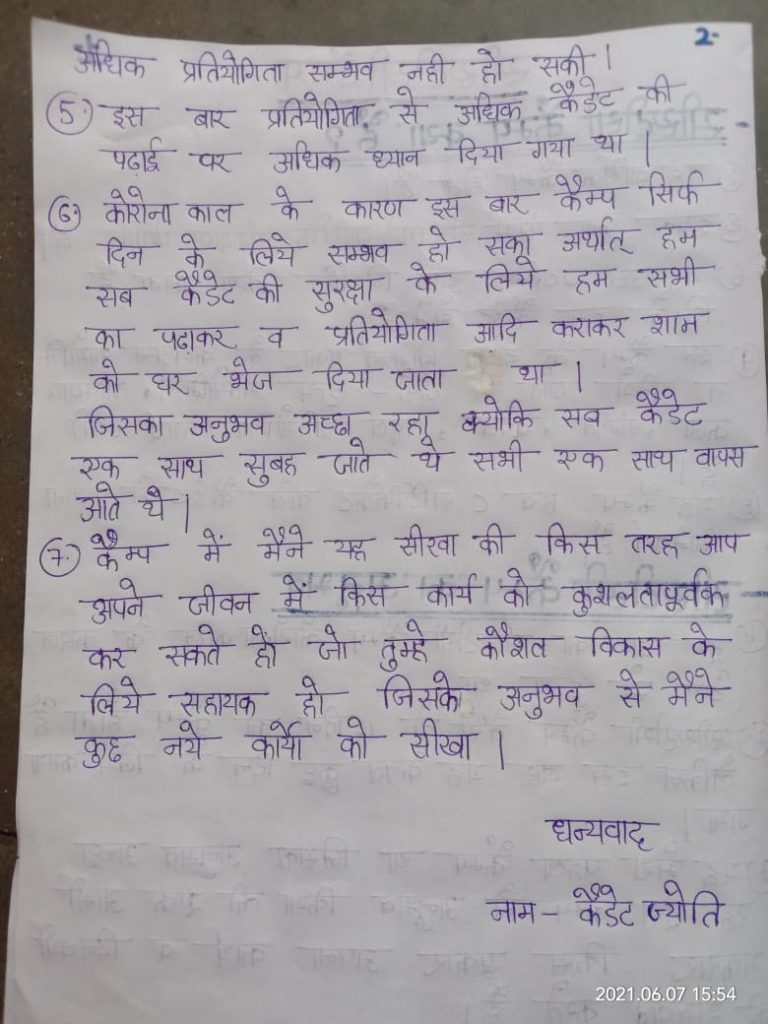 2.
अधिक प्रतियोगिता सम्भव नही हो सकी।
5. इस बार प्रतियोगिता से अधिक कैडेट की
पढ़ाई पर अधिक ध्यान दिया गया था।
6. कोरोना काल के कारण इस बार कैम्प सिर्फ
दिन के लिये सम्भव हो सका अर्थात् हम
सब कैडेट की सुरक्षा के लिये हम सभी
का पढाकर व प्रतियोगिता आदि कराकर शाम
को घर भेज दिया जाता था।
जिसका अनुभव अच्छा रहा क्योकि सब कैडेट
एक साथ सुबह जाते थे सभी एक साथ वापस
आते थे।
7. कैम्प में मैने यह सीखा की किस तरह आप
अपने जीवन में किस कार्य को कुशलतापूर्वक
कर सकते हों जो तुम्हे कौशल विकास के
लिये सहायक हो जिसके अनुभव से मैने
कुछ नये कार्यो को सीखा।
धन्यवाद
नाम - कैडेट ज्योति
2021.06.07 15:54